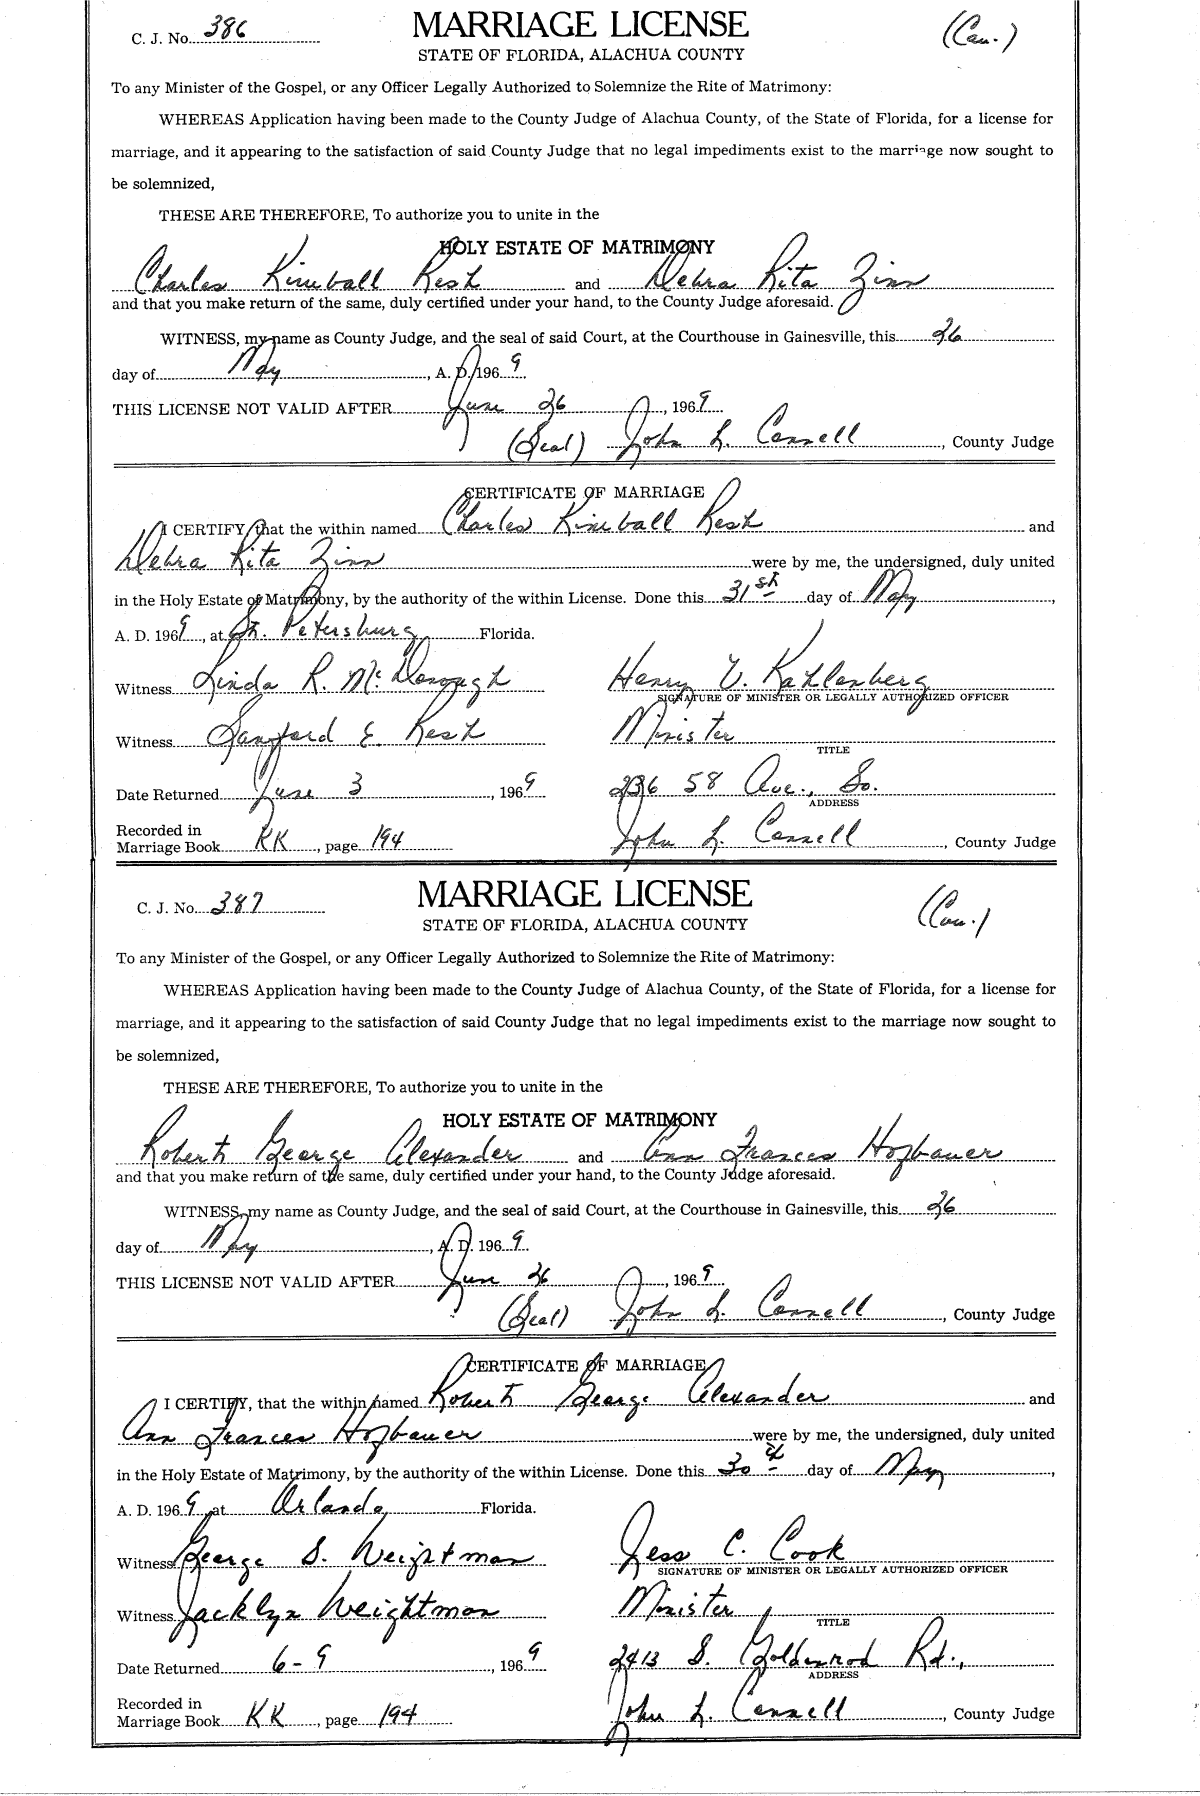 C. J. No. 386 MARRIAGE LICENSE (Cau.)
STATE OF FLORIDA, ALACHUA COUNTY
To any Minister of the Gospel, or any Officer Legally Authorized to Solemnize the Rite of Matrimony:
WHEREAS Application having been made to the County Judge of Alachua County, of the State of Florida, for a license for
marriage, and it appearing to the satisfaction of said County Judge that no legal impediments exist to the marriage now sought to
be solemnized,
THESE ARE THEREFORE, To authorize you to unite in the
HOLY ESTATE OF MATRIMONY
Charles Kimball Resh and Debra Rita Zinn
and that you make return of the same, duly certified under your hand, to the County Judge aforesaid.
WITNESS, my name as County Judge, and the seal of said Court, at the Courthouse in Gainesville, this 26
day of May, A. D. 1969
THIS LICENSE NOT VALID AFTER June 26, 1969
(Seal) John L. Connell, County Judge
CERTIFICATE OF MARRIAGE
I CERTIFY, that the within named Charles Kimball Resh and
Debra Rita Zinn were by me, the undersigned, duly united
in the Holy Estate of Matrimony, by the authority of the within License. Done this 31st day of May,
A. D. 1969, at St. Petersburg, Florida.
Witness Linda R. McDonough Henry V. Kahlenberg
SIGNATURE OF MINISTER OR LEGALLY AUTHORIZED OFFICER
Witness Sanford E. Resh Minister
TITLE
Date Returned June 3, 1969 236 58 Ave., So.
ADDRESS
Recorded in
Marriage Book KK, page 194 John L. Connell, County Judge
C. J. No. 387 MARRIAGE LICENSE (Cau.)
STATE OF FLORIDA, ALACHUA COUNTY
To any Minister of the Gospel, or any Officer Legally Authorized to Solemnize the Rite of Matrimony:
WHEREAS Application having been made to the County Judge of Alachua County, of the State of Florida, for a license for
marriage, and it appearing to the satisfaction of said County Judge that no legal impediments exist to the marriage now sought to
be solemnized,
THESE ARE THEREFORE, To authorize you to unite in the
HOLY ESTATE OF MATRIMONY
Robert George Alexander and Ann Frances Hofbauer
and that you make return of the same, duly certified under your hand, to the County Judge aforesaid.
WITNESS, my name as County Judge, and the seal of said Court, at the Courthouse in Gainesville, this 26
day of May, A. D. 1969
THIS LICENSE NOT VALID AFTER June 26, 1969
(Seal) John L. Connell, County Judge
CERTIFICATE OF MARRIAGE
I CERTIFY, that the within named Robert George Alexander and
Ann Frances Hofbauer were by me, the undersigned, duly united
in the Holy Estate of Matrimony, by the authority of the within License. Done this 30th day of May,
A. D. 1969, at Orlando, Florida.
Witness George S. Weightman Jess C. Cook
SIGNATURE OF MINISTER OR LEGALLY AUTHORIZED OFFICER
Witness Jacklyn Weightman Minister
TITLE
Date Returned 6-9, 1969 2413 S. Goldenrod Rd.,
ADDRESS
Recorded in
Marriage Book KK, page 194 John L. Connell, County Judge